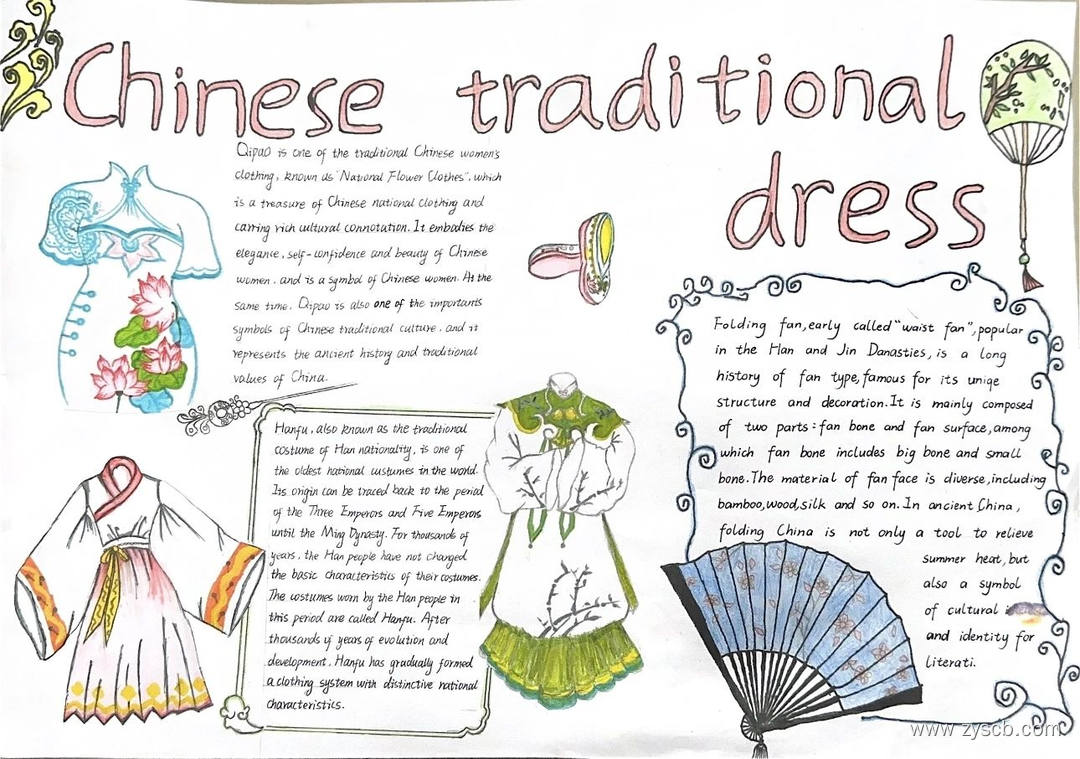 Chinese traditional
dress
Qipao is one of the traditional Chinese women's
clothing, known as "National Flower Clothes", which
is a treasure of Chinese national clothing and
carring rich cultural connotation. It embodies the
elegance, self-confidence and beauty of Chinese
women. and is a symbol of Chinese women. At the
same time. Qipao is also one of the importants
symbols of Chinese traditional culture. and it
represents the ancient history and traditional
values of China.
Hanfu, also known as the traditional
costume of Han nationality, is one of
the oldest national custumes in the world.
Its origin can be traced back to the period
of the Three Emperors and Five Emperors
until the Ming Dynasty. For thousands of
years, the Han people have not changed
the basic characteristics of their costumes.
The costumes worn by the Han people in
this period are called Hanfu. After
thousands of years of evolution and
development. Hanfu has gradually formed
a clothing system with distinctive national
characteristics.
Folding fan,early called "waist fan",popular
in the Han and Jin Danasties, is a long
history of fan type,famous for its uniqe
structure and decoration.It is mainly composed
of two parts:fan bone and fan surface,among
which fan bone includes big bone and small
bone.The material of fan face is diverse,including
bamboo,wood,silk and so on.In ancient China,
folding China is not only a tool to relieve
summer heat, but
also a symbol
of cultural
and identity for
literati.
www.zyscb.com